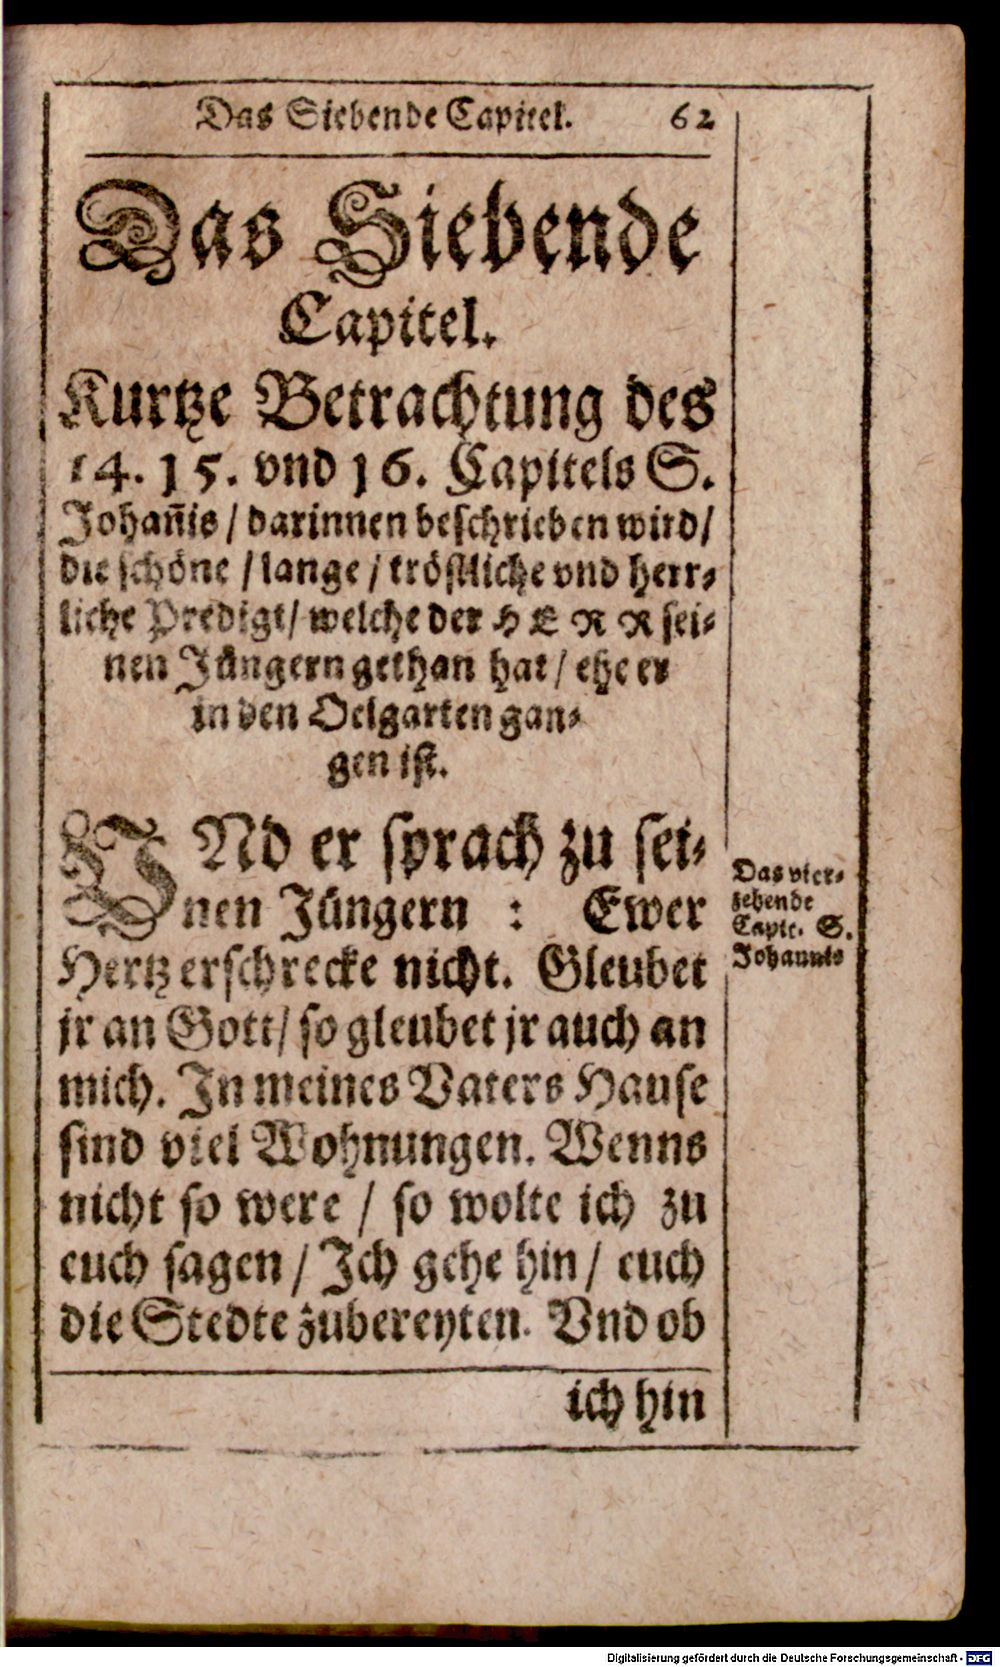 Das Siebende Capitel. 62
Das Siebende
Capitel.
Kurtze Betrachtung des
14. 15. vnd 16. Capitels S.
Johañis / darinnen beschrieben wird /
die schöne / lange / tröstliche vnd herr⸗
liche Predigt / welche der HERR sei⸗
nen Jüngern gethan hat / ehe er
in den Oelgarten gan⸗
gen ist.
VNd er sprach zu sei⸗
nen Jüngern : Ewer
Hertz erschrecke nicht. Gleubet
jr an Gott / so gleubet jr auch an
mich. In meines Vaters Hause
sind viel Wohnungen. Wenns
nicht so were / so wolte ich zu
euch sagen / Ich gehe hin / euch
die Stedte zubereyten. Vnd ob
ich hin
Das vier⸗
zehende
Capit. S.
Johannis
Digitalisierung gefördert durch die Deutsche Forschungsgemeinschaft - DFG